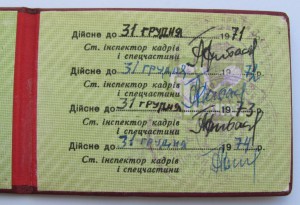 Дійсне до 31 грудня 1971
Ст. інспектор кадрів
і спецчастини
Дійсне до 31 грудня 1972 о.
Ст. інспектор кадрів
і спецчастини
Дійсне до 31 грудня 1973 о.
Ст. інспектор кадрів
і спецчастини
Дійсне до 31 грудня 1974 о.
Ст. інспектор кадрів
і спецчастини